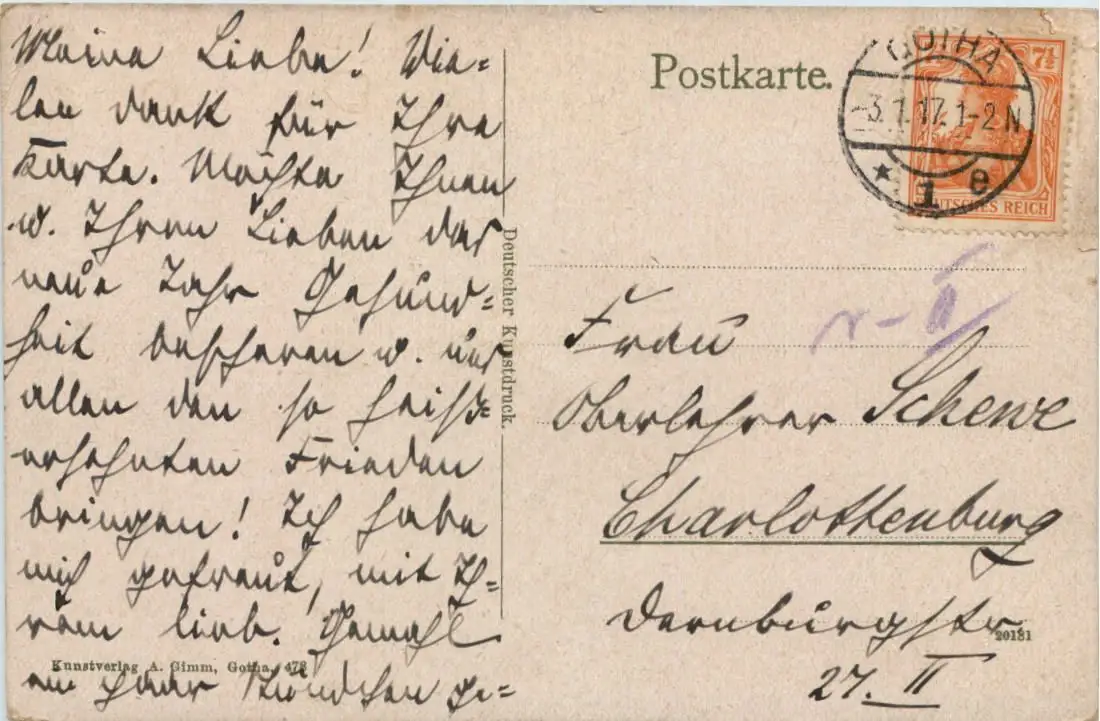 Meine Liebe! Vie=
len Dank für Ihre
Karte. Möchte Ihnen
u. Ihren Lieben das
neue Jahr Gesund=
heit bescheren u. uns
allen den so heiß=
ersehnten Frieden
bringen! Ich habe
mich gefreut, mit Ih=
rem lieb. Gemahl
ein paar Stündchen ge=
Kunstverlag A. Gimm, Gotha. 478
Deutscher Kunstdruck.
Postkarte.
GOTHA
3.1.17. 1-2 N
* 1 e
7½
DEUTSCHES REICH
Frau
Oberlehrer Schewe
Charlottenburg
Dernburgstr
27. II
20181